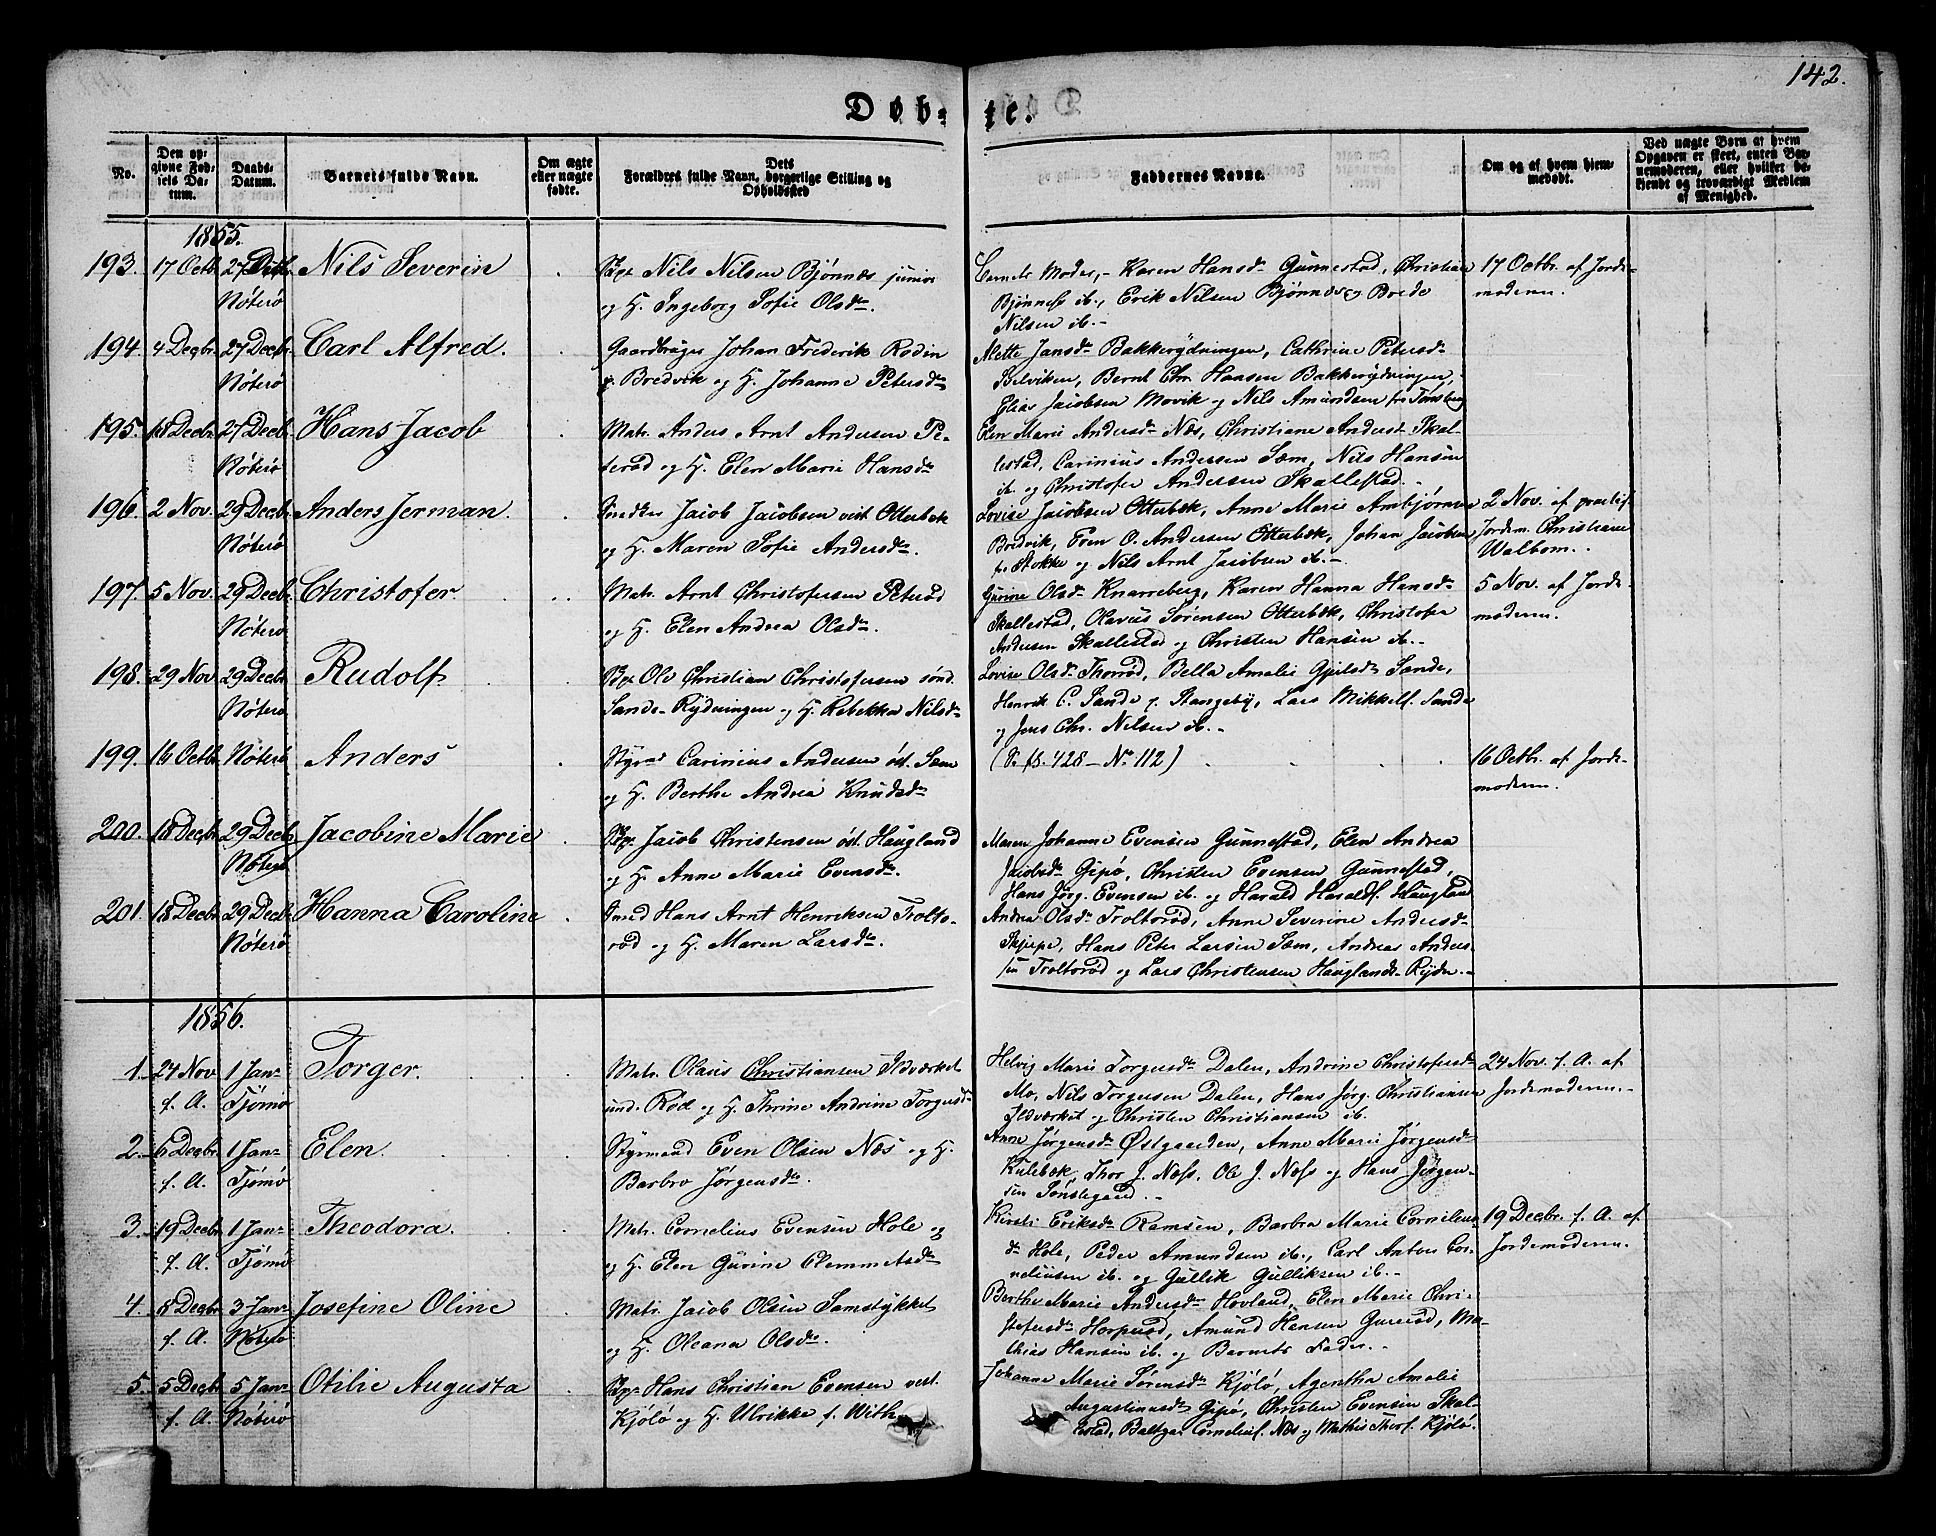 142.
Døbte.
No.
Den opgivne Fødsels Datum.
Daabs-Datum.
Barnets fulde Navn.
Om ægte eller uægte fødte.
Dets Forældres fulde Navn, borgerlige Stilling og Opholdssted
Faddernes Navne.
Om og af hvem hjemmedøbt.
Ved uægte Børn af hvem Opgaven er skeet, enten Barnemoderen, eller hvilket bekjendt og troværdigt Medlem af Menighed.
1855.
193. 17 Octb. 27 Decb. Nøterø
Nils Severin
Nils Nilsen Bjønnes junior
og H. Ingeborg Sofie Olsdr.
Barnets Moder, - Karen Hansdr Gunnestad, Christian
Bjønness ib., Erik Nilsen Bjønnes og Brede
Nilsen ib. -
17 Octbr. af Jorde-
moderen.
194. 4 Decbr. 27 Decb. Nøterø
Carl Alfred.
Gaardbruger Johan Frederik Rodin
p. Bredvik og H. Johanne Petersdr
Mette Jansdr Bakkerydningen, Cathrine Petersdr
Belviken, Bernt Chr. Hansen Bakkerydningen,
Elias Jacobsen Movik og Nils Amundsen fra Tønsberg
195. 18 Decbr. 27 Decb. Nøterø
Hans Jacob
Matr. Anders Arnt Andersen Pe-
terød og H. Elen Marie Hansdr
Elen Marie Andersdr Næs, Christiane Andersd Skal-
lestad, Carinius Andersen Sæm, Nils Hansen
ib. og Christofer Andersen Skallestad. -
196. 2 Nov. 29 Decb. Nøterø
Anders Jerman.
Jacob Jacobsen vest. Otterbæk
og H. Maren Sofie Andersdr.
Lovise Jacobsen Otterbæk, Anne Marie Ambjørnsen
Bredvik, Even O. Andersen Otterbæk, Johan Jacobsen,
fr. Stokke og Nils Arnt Jacobsen ib. -
2 Nov. af practis.
Jordem. Christiane
Walbom.
197. 5 Nov. 29 Decb. Nøterø
Christofer.
Matr. Arnt Christofersen Peterød
og H. Elen Andrea Olsdr.
Gunine Olsdr Knarreberg, Karen Hanna Hansdr
Skallestad, Olavus Sørensen Otterbæk, Christofer
Andersen Skallestad og Christen Hansen ib. -
5 Nov. af Jorde-
moderen.
198. 29 Nov. 29 Decb. Nøterø
Rudolf
Ole Christian Christofersen sønd.
Sande-Rydningen og H. Rebekka Nilsdr
Lovise Olsdr Thorød, Bella Amalie Gjelsdr Sande,
Henrik C. Sande p. Stangeby, Lars Mikkels. Sande
og Jens Chr. Nilsen ib. -
199. 16 Octb. Nøterø
Anders
Styrmd Carinius Andersen øst. Sæm
og H. Berthe Andrea Knudsdr
(S. 428 - No 112)
16 Octbr. af Jorde-
moderen.
200. 18 Decbr. 29 Decb. Nøterø
Jacobine Marie
Jacob Christensen øst. Haugland
og H. Anne Marie Evensdr.
Maren Johanne Evensen Gunnestad, Elen Andrea
Jacobsdr Gipø, Christen Evensen Gunnestad,
Hans Jørg. Evensen ib. og Harald Haralds. Haugland
201. 18 Decbr. 29 Decb. Nøterø
Hanna Caroline
Smed Hans Arnt Henriksen Trolto-
rød og H. Maren Larsdr.
Andrea Olsdr Troltorød, Anne Severine Andersdr
Skjerpe, Hans Peter Larsen Sæm, Andreas Anders-
sen Troltorød og Lars Christensen Hauglands-Rydn. -
1856.
1. 24 Nov. f. A. 1 Janr Tjømø
Torger.
Matr. Olaus Christiansen Ildværket
und. Rød og H. Thrine Andrine Torgersdr
Helvig Marie Torgersdr Dalen, Andrine Christofersdr
Mo, Nils Torgersen Dalen, Hans Jørg. Christiansen
Ildværket og Christen Christiansen ib.
24 Nov. f. A. af
Jordemoderen. -
2. 6 Decbr. f. A. 1 Janr Tjømø
Elen.
Styrmand Even Olsen Næs og H.
Barbro Jørgensdr.
Anne Jørgensdr Østgaarden, Anne Marie Jørgensdr
Kulebæk, Thor J. Næss, Ole J. Næss og Hans Jørgen-
sen Sønstegaard. -
3. 19 Decbr. f. A. 1 Janr Tjømø
Theodora.
Matr. Cornelius Evensen Hole og
og H. Elen Gurine Clemmetsdr
Kirsti Eriksdr Ramsen, Barbra Marie Cornelius-
dr Hole, Peder Amundsen ib., Carl Anton Cor-
neliusen ib. og Gullik Gulliksen ib. -
19 Decbr. f. A. af
Jordemoderen.
4. 8 Decbr. f. A. 3 Janr Nøterø
Josefine Oline
Matr. Jacob Olsen Samstykket
og H. Oleana Olsdr.
Berthe Marie Andersdr Hovland, Elen Marie Chri-
stofersdr Horperød, Amund Hansen Gurerød, Ma-
thias Hansen ib. og Barnets Fader. -
5. 5 Decbr f. A. 5 Janr Nøterø
Otilie Augusta
Hans Christian Evensen vest.
Kjølø og H. Ulrikke f. With
Johanne Marie Sørensdr Kjølø, Agentha Amalie
Augustinusdr Gipø, Christen Evensen Skal-
lestad, Baltzar Cornelius. Næs og Mathis Thors. Kjølø.